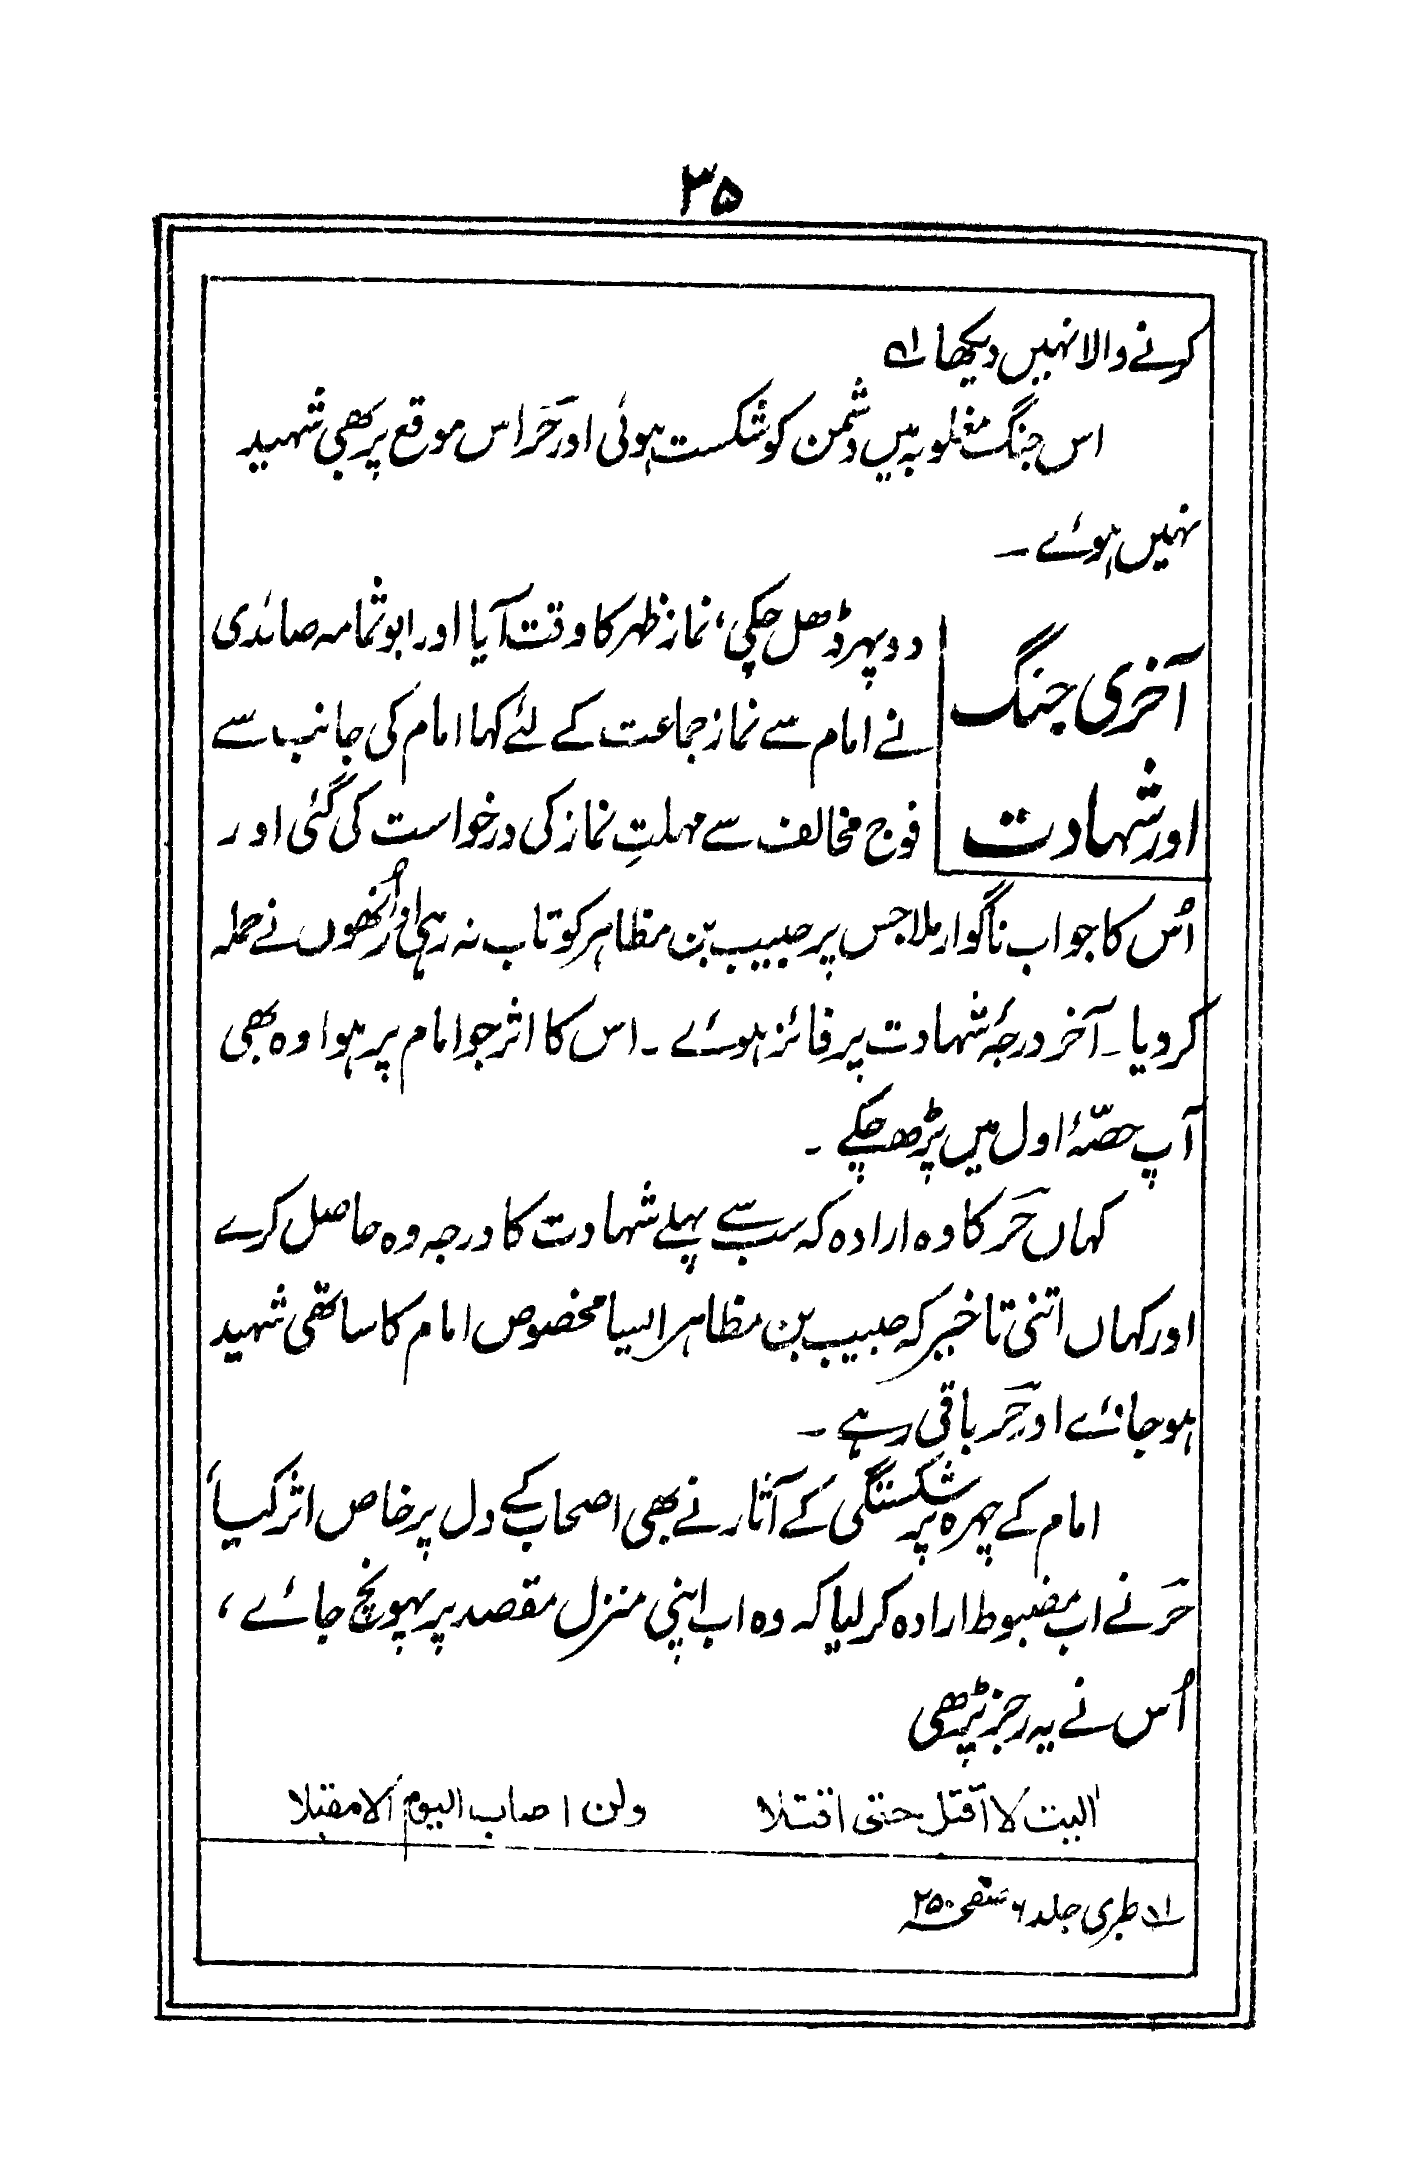 ۳۵
کرنے والا نہیں دیکھا ؎۱
اس جنگ مغلوبہ میں دشمن کو شکست ہوئی اور حُر اس موقع پر بھی شہید
نہیں ہوئے ۔
آخری جنگ
اور شہادت
دوپہر ڈھل چکی، نماز ظہر کا وقت آیا اور ابو ثمامہ صائدی
نے امام سے نماز جماعت کے لئے کہا امام کی جانب سے
فوج مخالف سے مہلتِ نماز کی درخواست کی گئی اور
اُس کا جواب ناگوار ملا جس پر حبیب بن مظاہر کو تاب نہ رہی اور اُنھوں نے حملہ
کردیا ۔ آخر درجۂ شہادت پر فائز ہوئے ۔ اس کا اثر جو امام پر ہوا وہ بھی
آپ حصّۂ اول میں پڑھ چکے ۔
کہاں حُر کا وہ ارادہ کہ سب سے پہلے شہادت کا درجہ وہ حاصل کرے
اور کہاں اتنی تاخیر کہ حبیب بن مظاہر ایسا مخصوص امام کا ساتھی شہید
ہوجائے اور حُر باقی رہے ۔
امام کے چہرہ پر شکستگی کے آثار نے بھی اصحاب کے دل پر خاص اثر کیا
حُر نے اب مضبوط ارادہ کرلیا کہ وہ اب اپنی منزل مقصد پر پہونچ جائے ،
اُس نے یہ رجز پڑھی
الیت لا اقتل حتی اقتلا ولن اصاب الیوم الا مقبلا
؎۱ طبری جلد ۶ صفحہ ۲۵۰